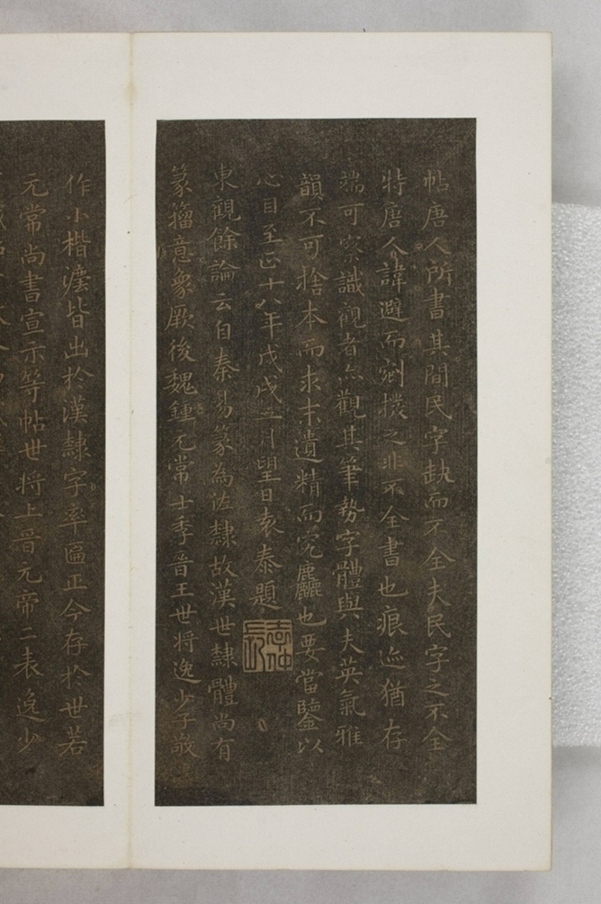 帖唐人所書其間民字缺而不全夫民字之不全
特唐人諱避而剜撥之非不全書也痕迹猶存
端可察識觀者亦觀其筆勢字體與夫英氣雅
韻不可捨本而求末遺精而究麤也要當鑒以
心目至正十八年戊戌三月望日袁泰題
東觀餘論云自秦易篆為佐隸故漢世隸體尚有
篆籀意象厥後魏鍾元常士季晉王世將逸少子敬
作小楷法皆出於漢隸字率匾正今存於世若
元常尚書宣示等帖世將上晉元帝二表逸少